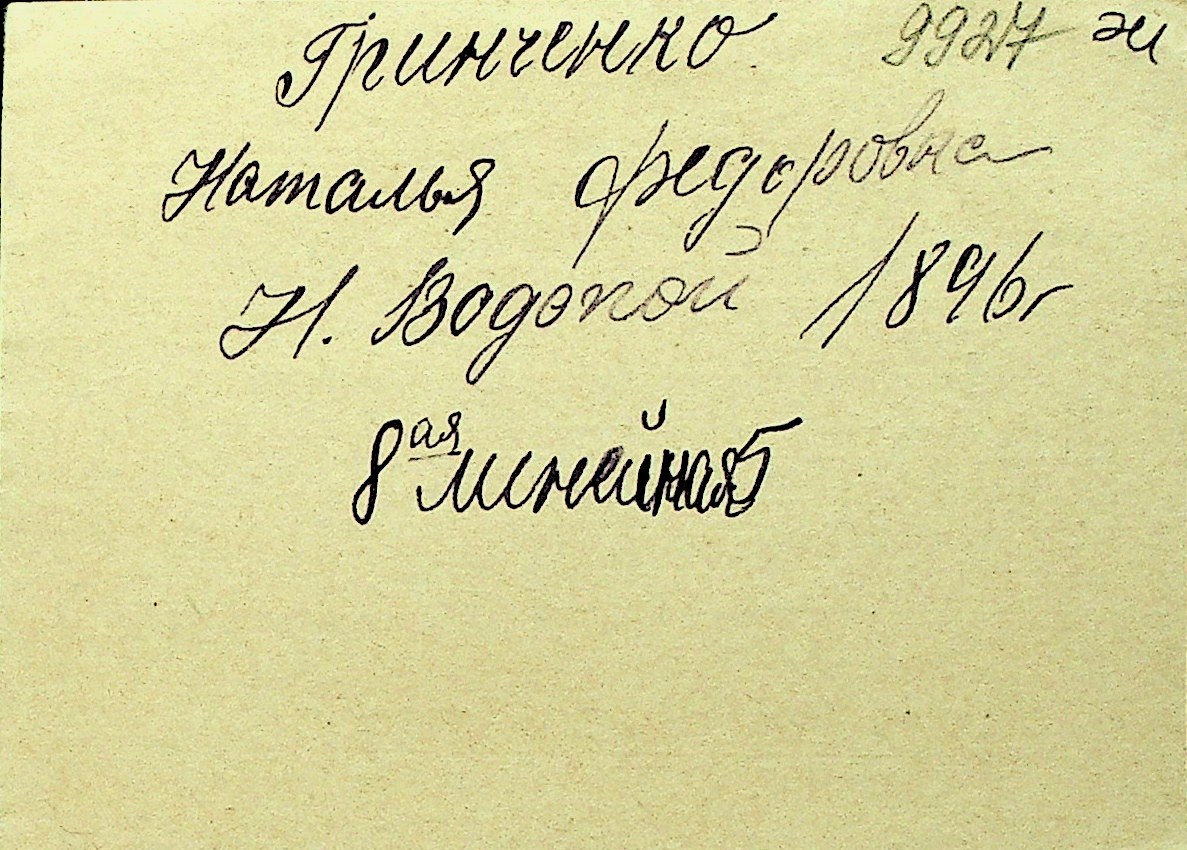 Гринченко 9927 ж
Наталья Федоровна
Н. Водопой 1896г
8ая линейная 5